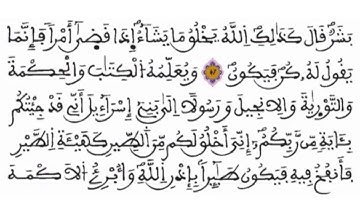 بَشَرٌ قَالَ كَذَٰلِكِ اَللَّهُ يَخْلُقُ مَا يَشَآءُ إِذَا قَضَىٰٓ أَمْراً فَإِنَّمَا
يَقُولُ لَهُۥ كُن فَيَكُونُ وَيُعَلِّمُهُ اُلْكِتَٰبَ وَالْحِكْمَةَ
وَالتَّوْرَىٰةَ وَالِانجِيلَ وَرَسُولاً اِلَىٰ بَنِےٓ إِسْرَآءِيلَ أَنِّے قَدْ جِئْتُكُم
بِـَٔايَةٍ مِّن رَّبِّكُمُۥٓ إِنِّيَ أَخْلُقُ لَكُم مِّنَ اَلطِّينِ كَهَيْـَٔةِ اِلطَّيْرِ
فَأَنفُخُ فِيهِ فَيَكُونُ طَٰٓئِراً بِإِذْنِ اِللَّهِ وَأُبْرِئُ اُلَاكْمَهَ